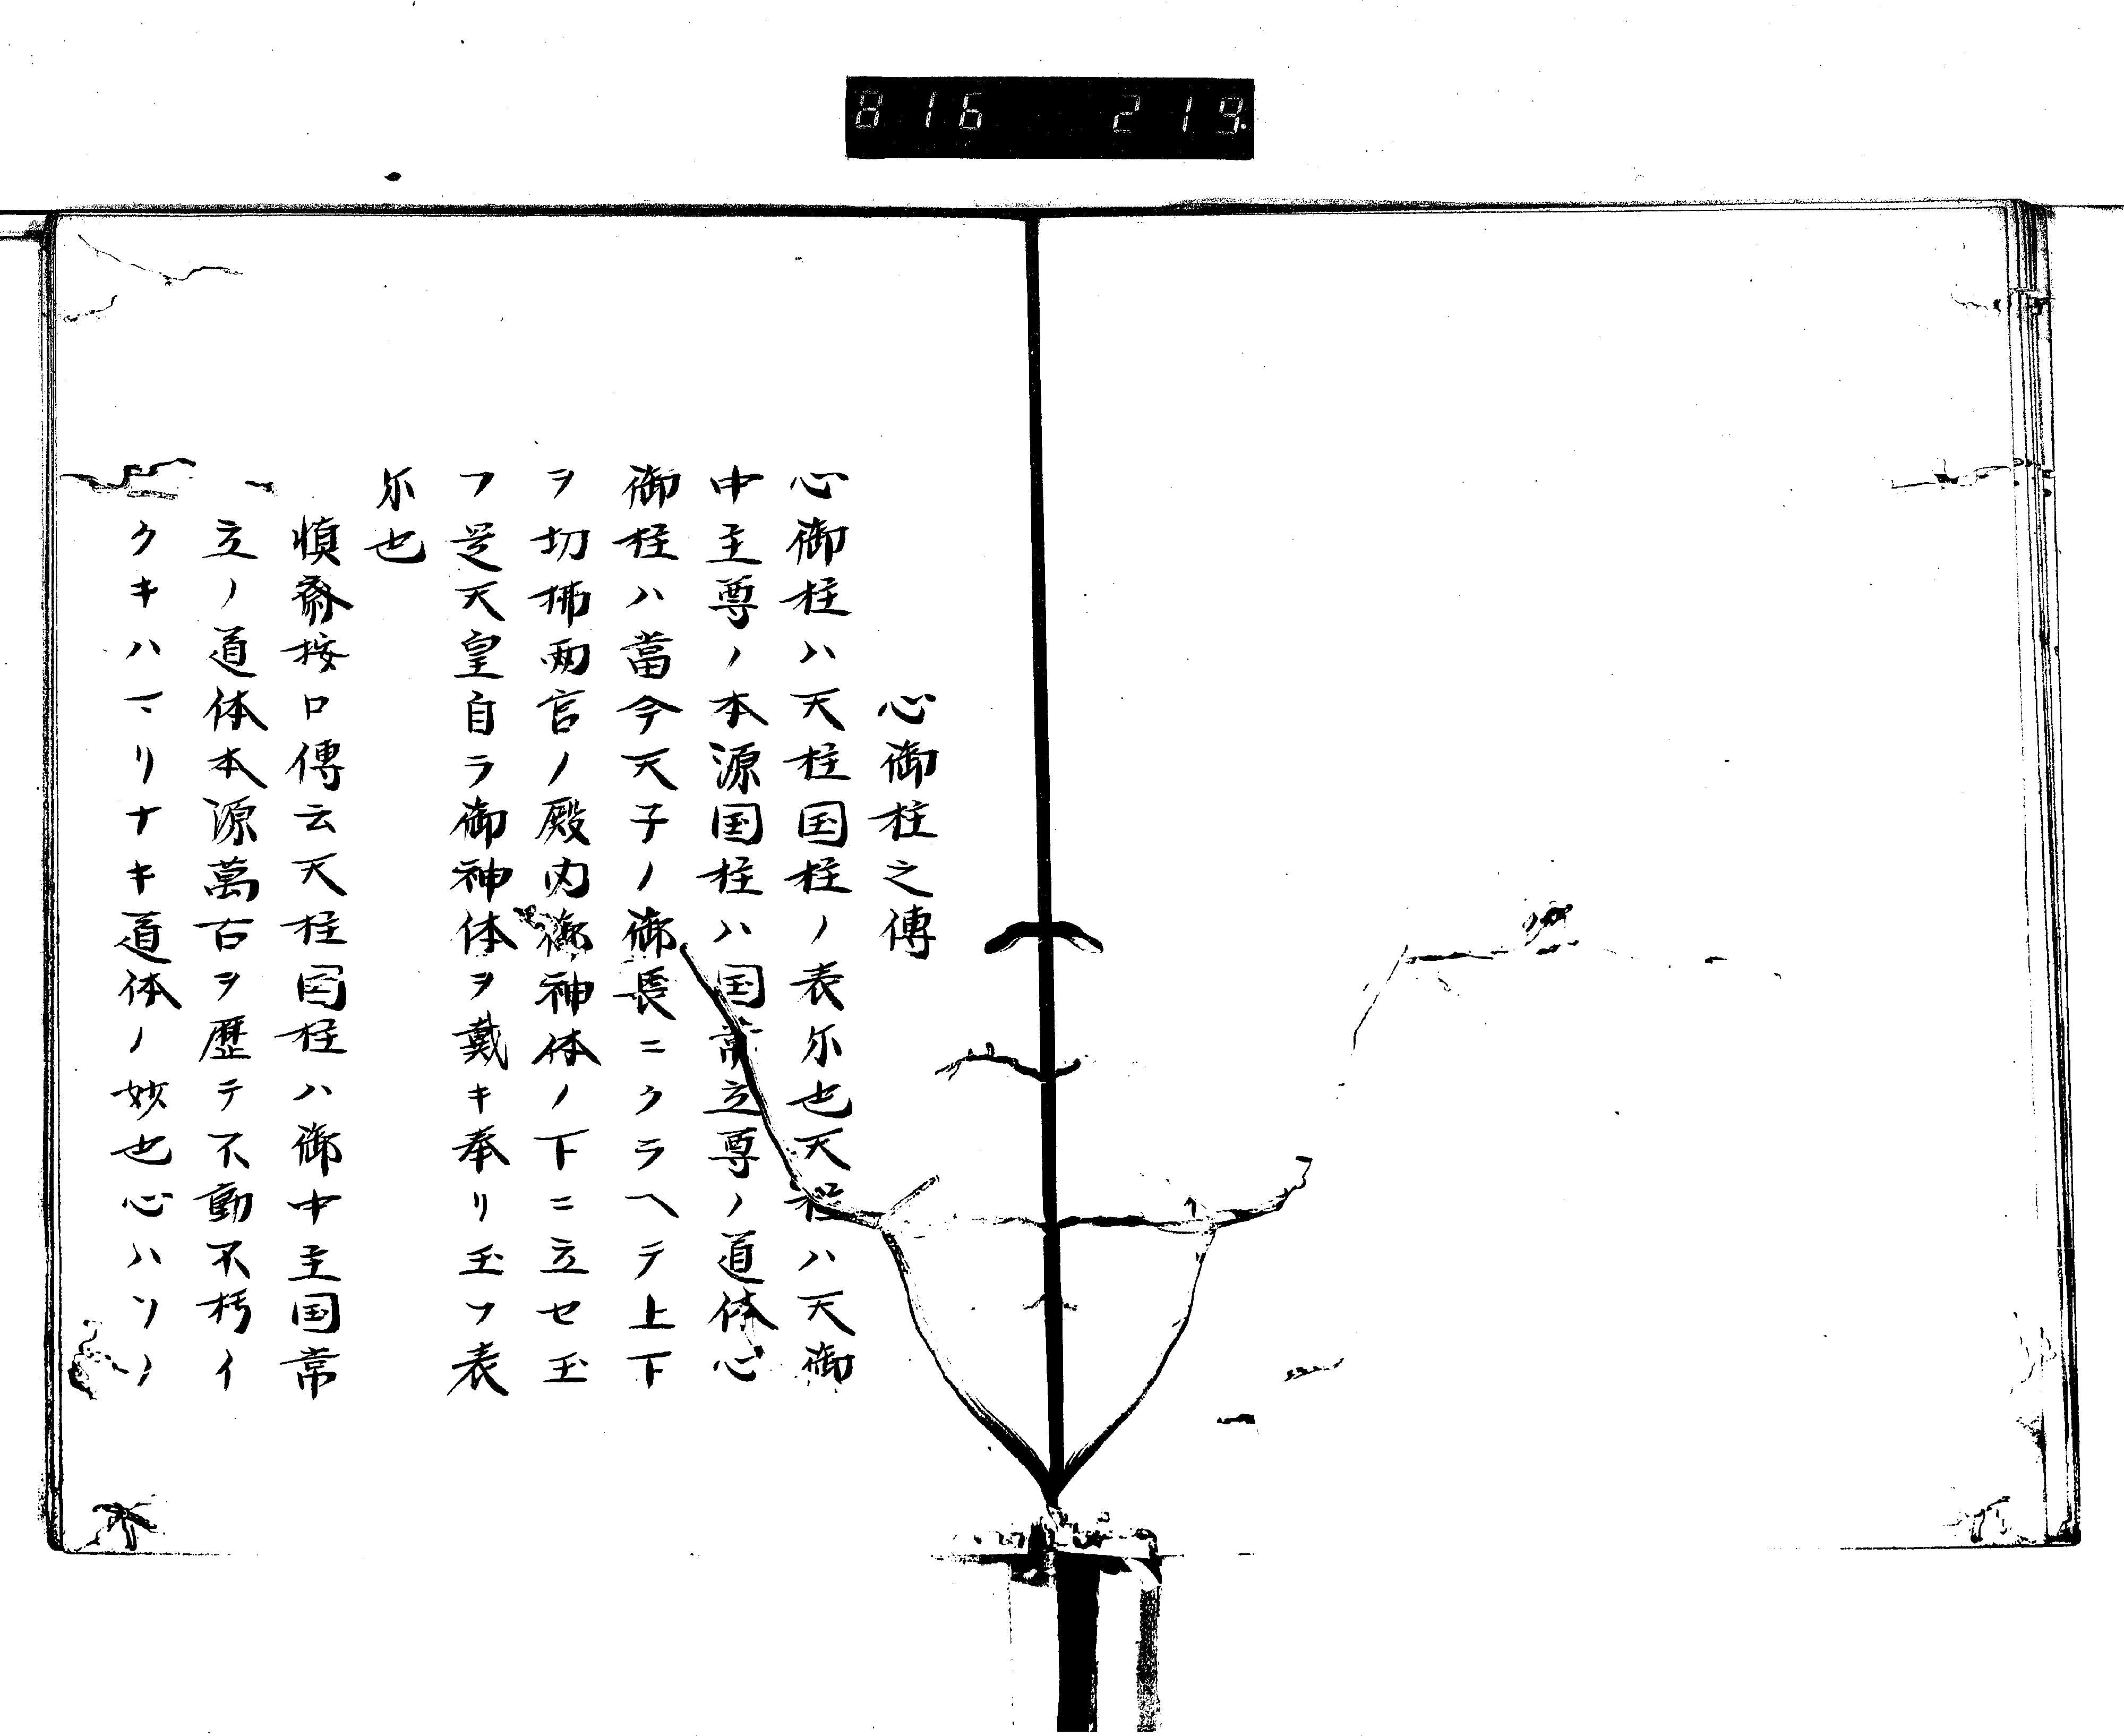 816 219
心御柱之傳
心御柱ハ天柱国柱ノ表尓也天柱ハ天御
中主尊ノ本源国柱ハ国常立尊ノ道体心
御柱ハ當今天子ノ御長ニクラヘテ上下
ヲ切拂両宮ノ殿内御神体ノ下ニ立セ玉
フ是天皇自ラ御神体ヲ戴キ奉リ玉フ表
尓也
慎齋按口傳云天柱国柱ハ御中主国常
立ノ道体本源萬古ヲ歴テ不動不朽イ
クキハマリナキ道体ノ妙也心ハソノ